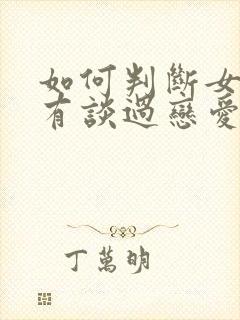 如何判斷女
有談過戀愛
丁萬明